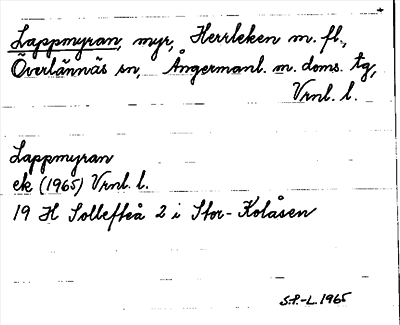 Lappmyran, myr, Herrleken m. fl.,
Överlännäs sn, Ångermanl. m. doms. tg,
Vrnl. l.
Lappmyran
ek (1965) Vrnl. l.
19 H Sollefteå 2 i Stor-Kolåsen
S.P.-L. 1965